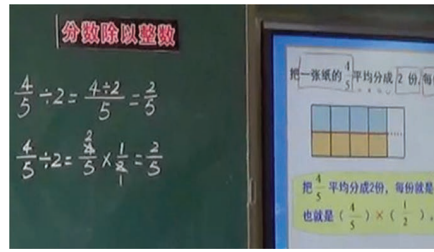 分数除以整数
4/5÷2=4÷2/5=2/5
4/5÷2=4/5×1/2=2/5
2
1
把一张纸的4/5平均分成2份,每
把4/5平均分成2份,每份就是
也就是(4/5)×(1/2)。